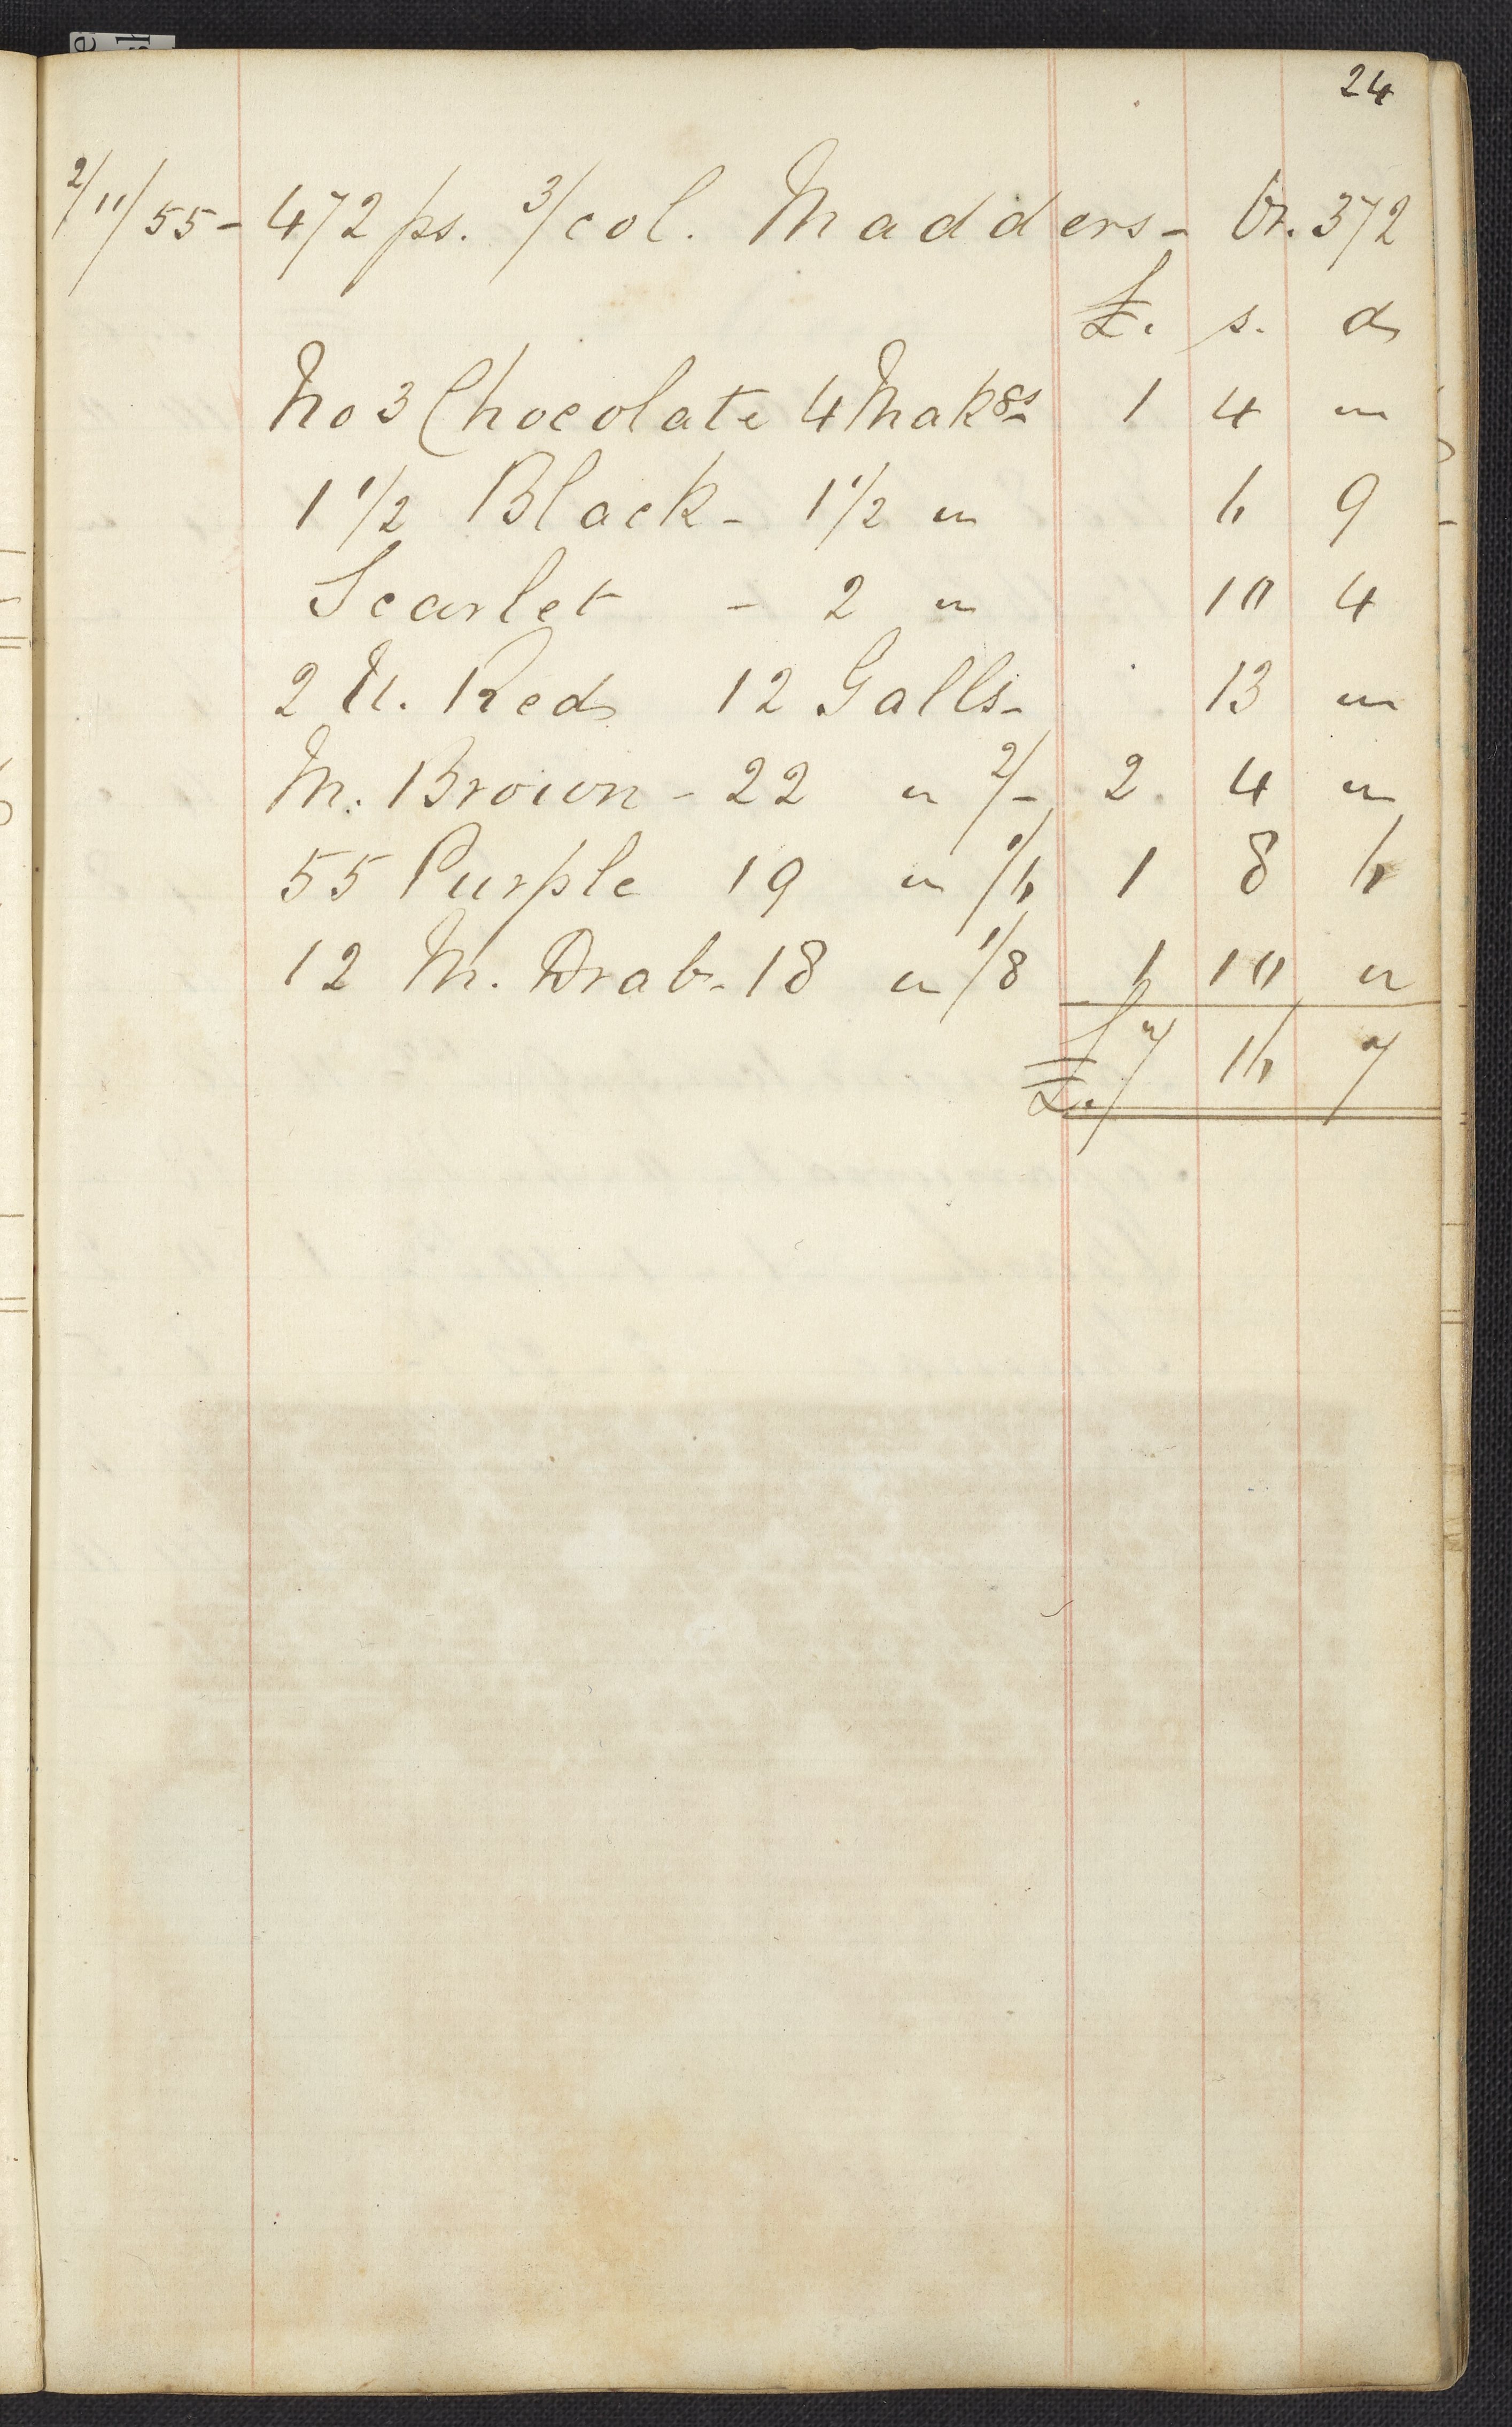 24
2/11/55 - 472 ps. 3/col. Madders - Or. 372
£. s. d
No 3 Chocolate 4 Makgs 1 4 "
1 1/2 Black - 1 1/2 " 6 9
Scarlet - 2 " 10 4
2 N. Red 12 Galls - 13 "
M. Brown - 22 " 2/- 2 4 "
55 Purple 19 " 1/6 1 8 6
12 M. Drab - 18 " 1/8 1 10 "
£. 7 16 7